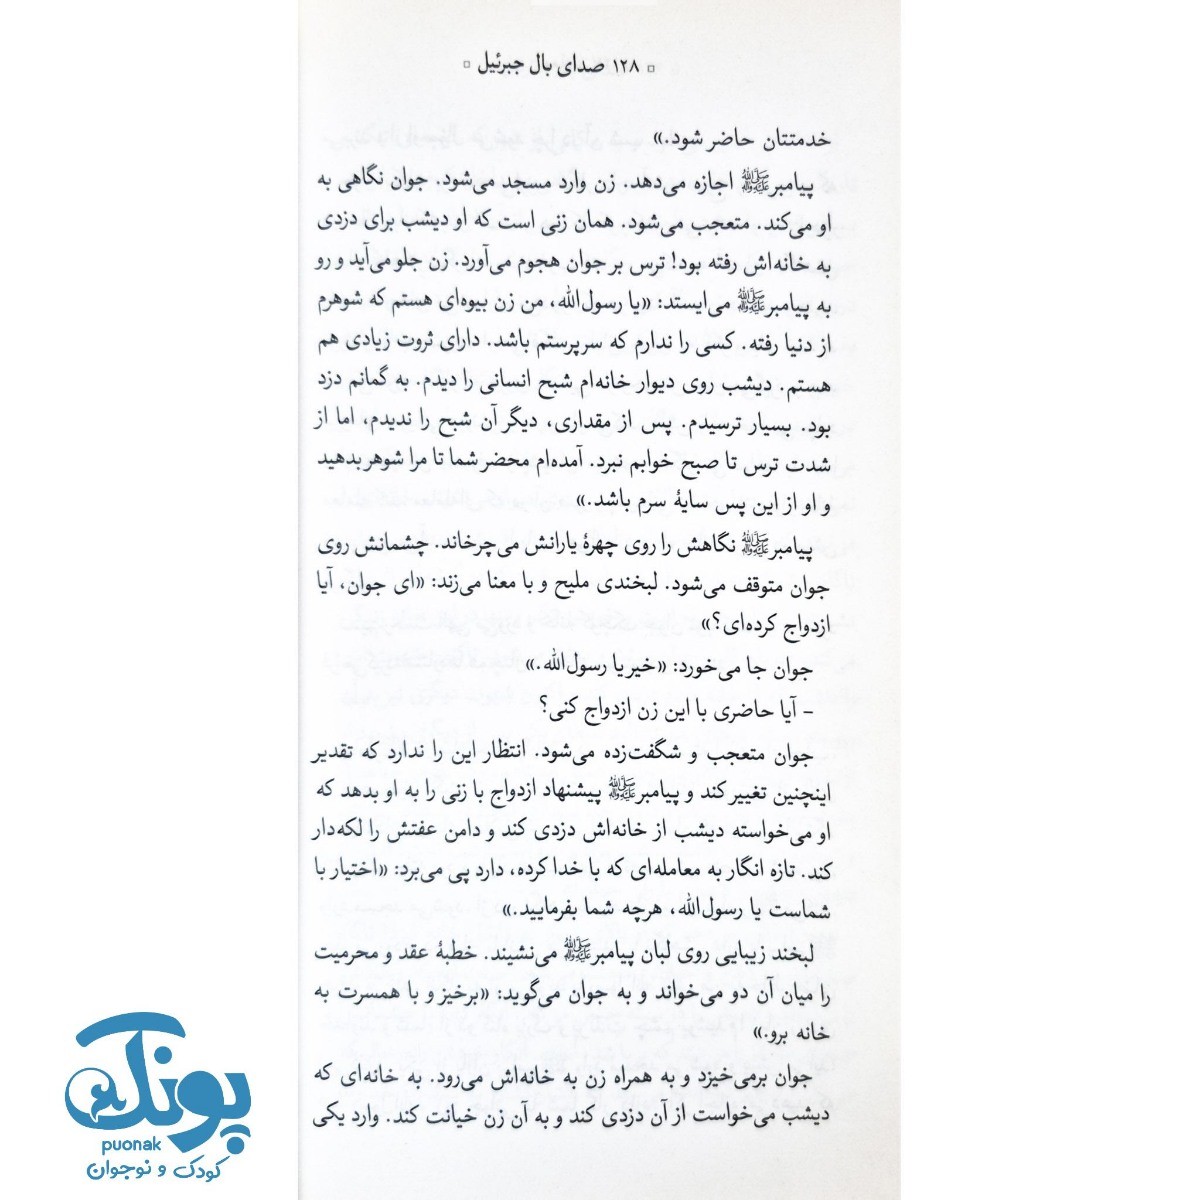 ▫ ۱۲۸ صدای بال جبرئیل ▫
خدمتتان حاضر شود.»
پیامبرﷺ اجازه می‌دهد. زن وارد مسجد می‌شود. جوان نگاهی به
او می‌کند. متعجب می‌شود. همان زنی است که او دیشب برای دزدی
به خانه‌اش رفته بود! ترس بر جوان هجوم می‌آورد. زن جلو می‌آید و رو
به پیامبرﷺ می‌ایستد: «یا رسول‌الله، من زن بیوه‌ای هستم که شوهرم
از دنیا رفته. کسی را ندارم که سرپرستم باشد. دارای ثروت زیادی هم
هستم. دیشب روی دیوار خانه‌ام شبح انسانی را دیدم. به گمانم دزد
بود. بسیار ترسیدم. پس از مقداری، دیگر آن شبح را ندیدم، اما از
شدت ترس تا صبح خوابم نبرد. آمده‌ام محضر شما تا مرا شوهر بدهید
و او از این پس سایهٔ سرم باشد.»
پیامبرﷺ نگاهش را روی چهرهٔ یارانش می‌چرخاند. چشمانش روی
جوان متوقف می‌شود. لبخندی ملیح و با معنا می‌زند: «ای جوان، آیا
ازدواج کرده‌ای؟»
جوان جا می‌خورد: «خیر یا رسول‌الله.»
- آیا حاضری با این زن ازدواج کنی؟
جوان متعجب و شگفت‌زده می‌شود. انتظار این را ندارد که تقدیر
اینچنین تغییر کند و پیامبرﷺ پیشنهاد ازدواج با زنی را به او بدهد که
او می‌خواسته دیشب از خانه‌اش دزدی کند و دامن عفتش را لکه‌دار
کند. تازه انگار به معامله‌ای که با خدا کرده، دارد پی می‌برد: «اختیار با
شماست یا رسول‌الله، هرچه شما بفرمایید.»
لبخند زیبایی روی لبان پیامبرﷺ می‌نشیند. خطبهٔ عقد و محرمیت
را میان آن دو می‌خواند و به جوان می‌گوید: «برخیز و با همسرت به
خانه برو.»
جوان برمی‌خیزد و به همراه زن به خانه‌اش می‌رود. به خانه‌ای که
دیشب می‌خواست از آن دزدی کند و به آن زن خیانت کند. وارد یکی
پونک
puonak
کودک و نوجوان